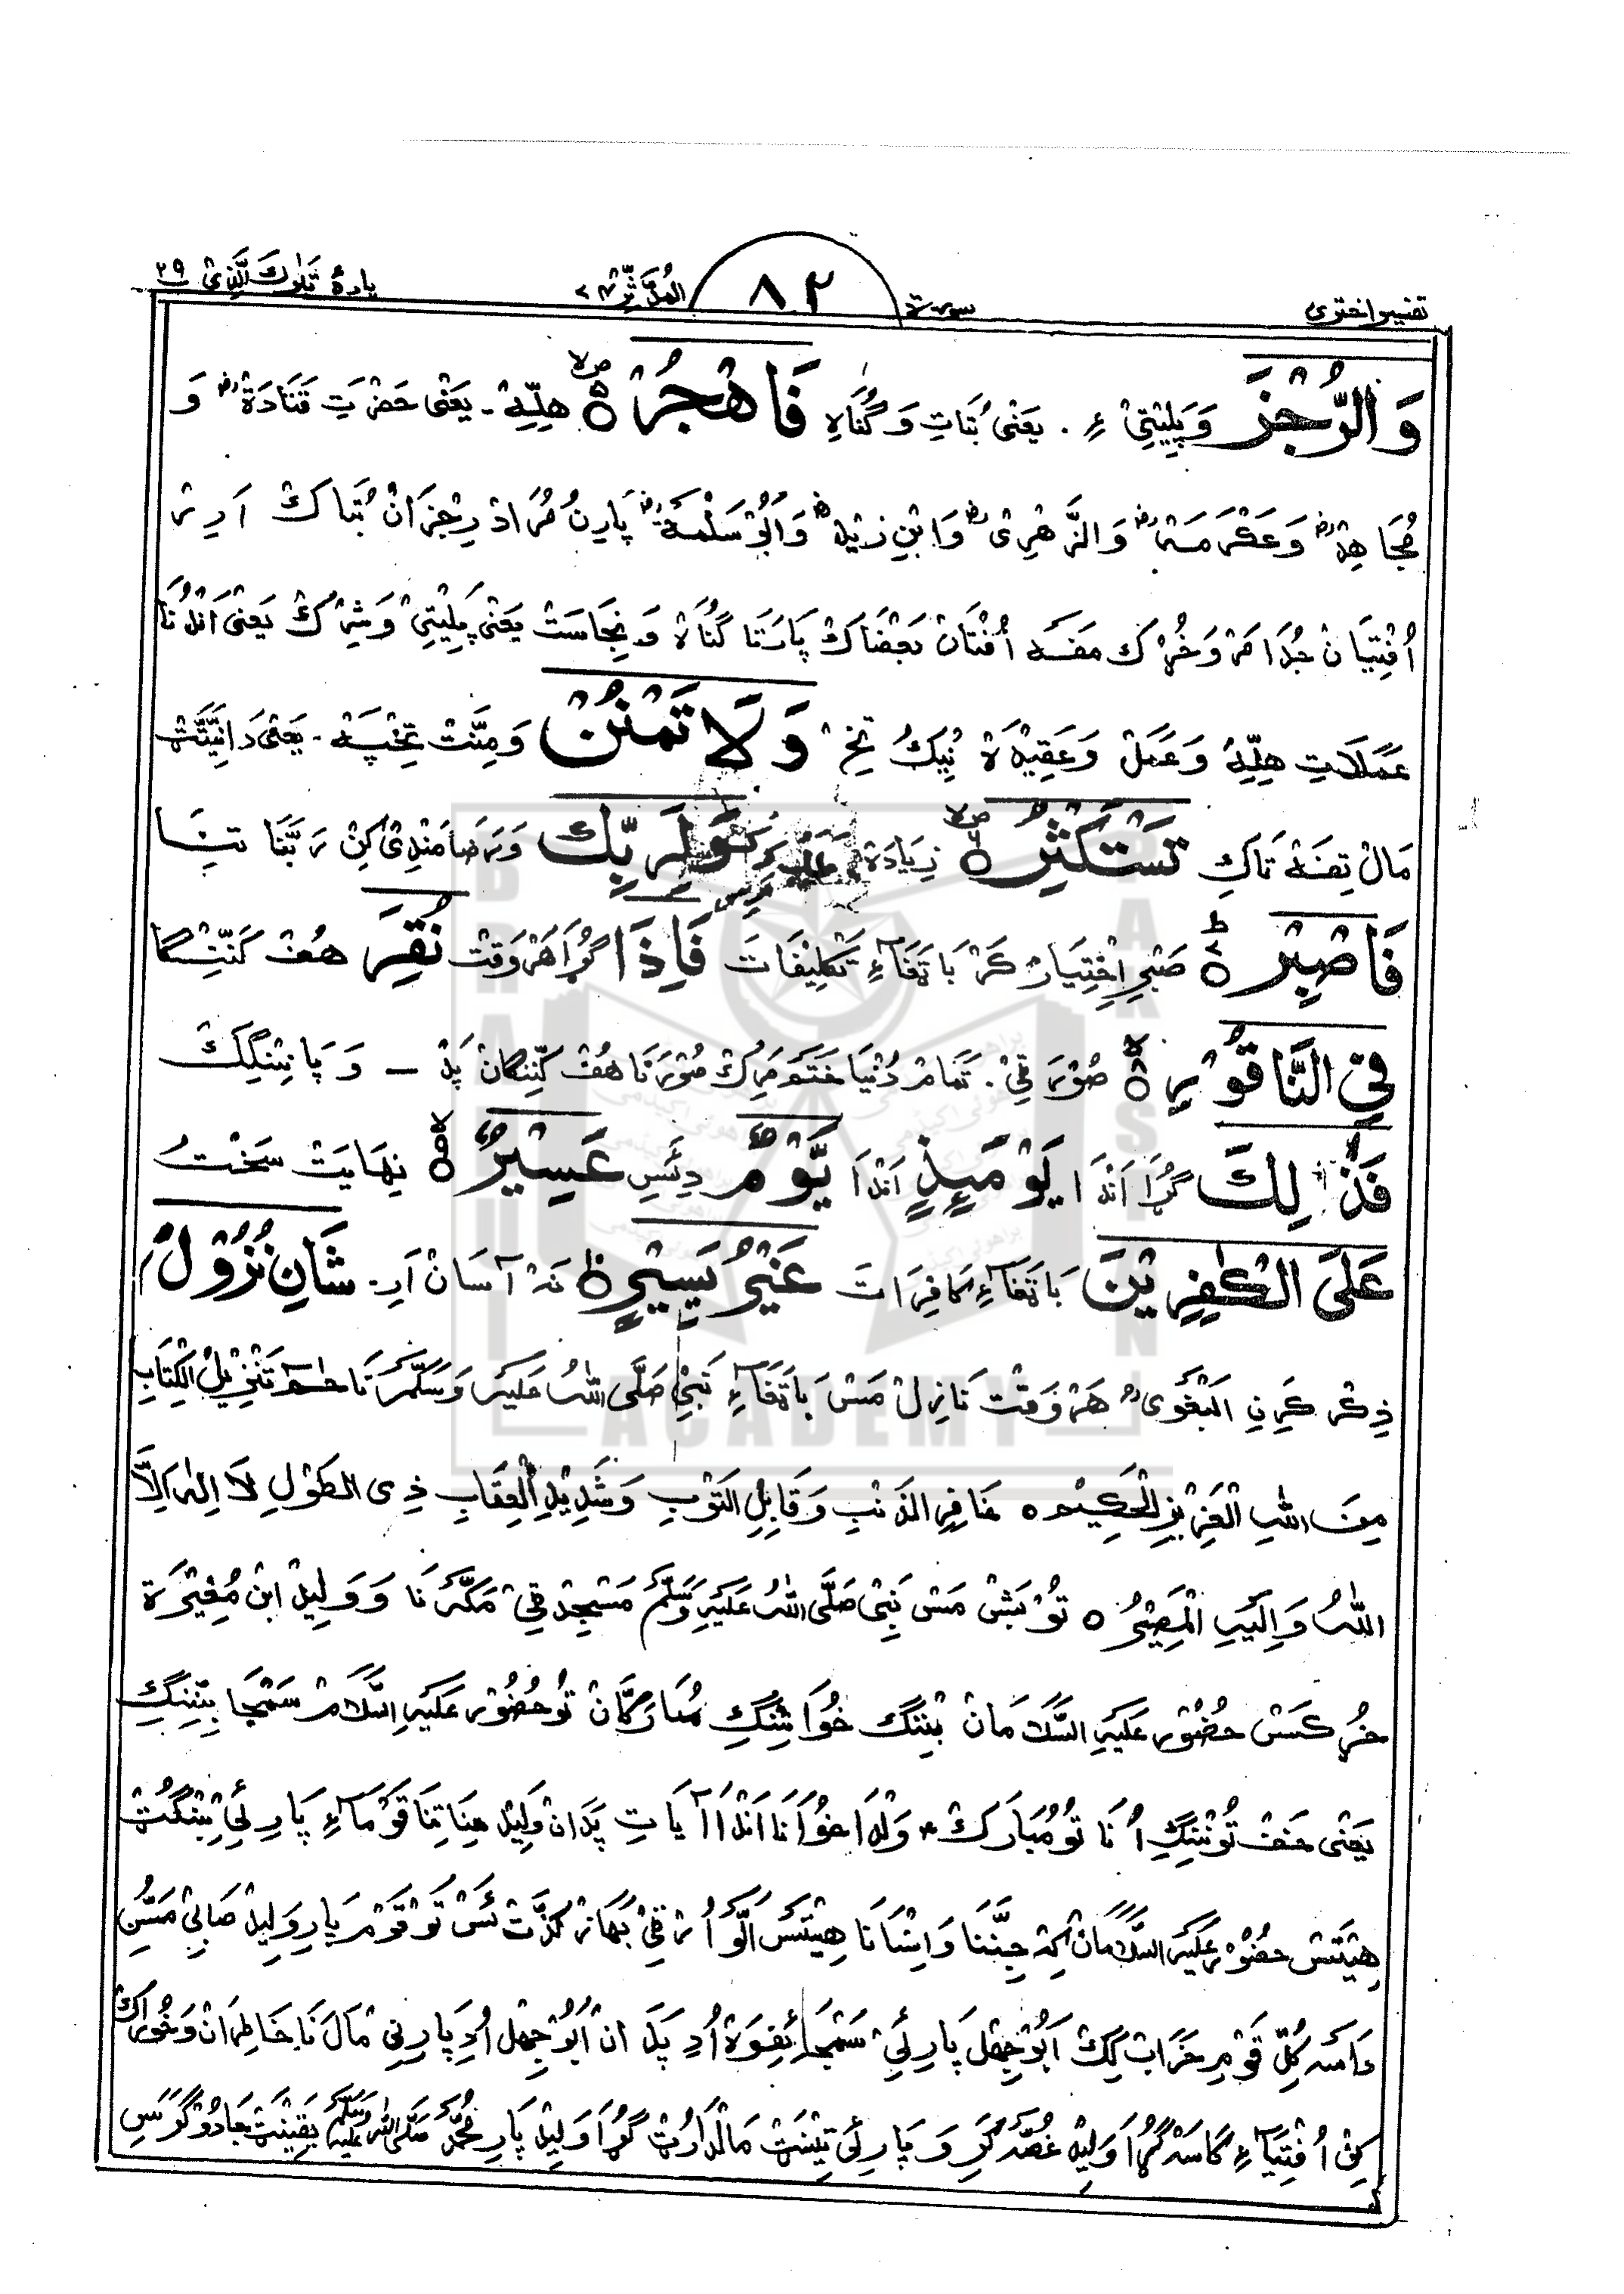 تفسیر اختری سورت ٨٢ المُدَّثِّر ٧٤ پارهٔ تَبٰرَكَ الَّذِیْ ٢٩
وَالرُّجْزَ وَپِلِیْتِیْ ءِ . یَعْنٖی بُتَاتِ وَ گُنَاهِ فَاهْجُرْ ۝ هِلِّهْ ـ یَعْنٖی حَضْرَتِ قَتَادَةؓ وَ
مُجَاهِدْؓ وَ عَکْرَمَہْؓ وَالزُّهْرِیْؓ وَابْنِ زَیْدؓ وَ اَبُوْسَلْمَهْؓ پَارِنُ مُرَادْ رِجْزَانْ بُتَاكْ اَرِرْ
اُفْتِیَانْ جُدَامَرْ وَ خُرْك مَفَہ اُفْتَانْ بَعْضَاكْ پَارَتَا گُنَاہْ وَ نِجَاسَتْ یَعْنٖی پِلِیْتِیْ وَ شِرْكْ یَعْنٖی اَنْدُنَا
عَمَلَاتِ هِلِّهْ وَعَمَلْ وَ عَقِیْدَہْ نِیْكُ تِخْ وَلَا تَمْنُنْ وَ مِنَّتْ تِخْپَہْ ـ یَعْنٖی دَانِیَّتَّتْ
مَالْ تِفَہْ تَاكِ تَسْتَكْثِرُ ۝ زِیَادَہْ وَلِرَبِّكَ وَ رَضَامَنْدِیْ کِنْ رَبَّنَا تِنَا
فَاصْبِرْ ۝ صَبْرِ اِخْتِیَارْ کَرْ بَاتَغَآءِ تَکْلِیْفَاتَ فَاِذَا گُڑَا هَرْ وَقْتْ نُقِرَ هُفْ کَنِّنْگَا
فِی النَّاقُوْرِ ۝ صُوْرَ قِیْ . تَمَامْ دُنْیَا خَتَمْ مَرِكْ صُوْرَنَا هُفْ کِنِّنْگَانْ پَدْ ـ وَ پَانِنْگِكْ
فَذٰلِكَ گُڑَا اَنْدَا یَوْمَىِٕذٍ اَنْدَا یَّوْمٌ دِئَسِ عَسِیْرٌ ۝ نِهَایَتْ سَخْتُ
عَلَى الْكٰفِرِیْنَ بَاتَغَآءِ کَافِرَاتَ غَیْرُ یَسِیْرٍ ۝ نَہْ آسَانْ اَرِ . شَانِ نُزُوْلْ
ذِکْر کَرِنِ الْبَغَوِیْؒ هَرْ وَقْتْ نَازِلْ مَسْ بَاتَغَآءِ نَبِیْ صَلَّی اللّٰهُ عَلَیْهِ وَسَلَّمَ نَا حٰمٓ تَنْزِیْلُ الْکِتَابِ
مِنَ اللّٰهِ الْعَزِیْزِ الْحَکِیْمِ ۝ غَافِرِ الذَّنْبِ وَقَابِلِ التَّوْبِ وَ شَدِیْدِ الْعِقَابِ ذِی الطَّوْلِ لَا اِلٰهَ اِلَّا
اللّٰهُ وَ اِلَیْهِ الْمَصِیْرُ ۝ تُوْ بَشْ مَسْ نَبِیْ صَلَّی اللّٰهُ عَلَیْهِ وَسَلَّمَ مَسْجِدْ قِیْ مَکَّہ نَا وَ وَلِیْدْ ابْن مُغِیْرَة
خُرُکَسْ حُضُوْر عَلَیْهِ السَّلَامَانْ بِنِنْگ خُوَانِنْگِ مُبَارَکَّانْ تُو حُضُوْر عَلَیْهِ السَّلَامْ سَمْجَا بِنِنْگِ
یَعْنٖی خَفْ تُوْنِنْگِ اُنَا تُو مُبَارَكْ وَلْدَا خُوَانَا اَنْدَا آیَاتِ پَدَانْ وَلِیْد هِنَا تِنَا قَوْمَآءِ پَارِئِیْ بِنْگُٹْ
هِیْتَسْ حُضُوْر عَلَیْهِ السَّلَامَانْ کِہْ جِنَّنَا وَ اِنْسَانَا هِیْتَسْ اَلَّوْ اُرْقِیْ بَهَازْ لَذَّتْ ئَسْ تُوْ قَوْمْ پَارِ وَلِیْد صَابِیْ مَسُّنِ
دَاسَہ کُلْ قَوْمِ خَرَابْ کِكْ اَبُوْ جِهْل پَارِئِیْ سَمْجَا ئِفِوَہْ اُدِ پَدَانْ اَبُوْ جِهْل اُدِ پَارِنِیْ مَالَنَا خَاطِرَانْ وَ خُورَاكْ
کِنْ اُفْتِیَآءِ کَاسَہ گُڑَا وَلِیْدْ غُصَّہ کَرِ وَ پَارِئِیْ تِیْنَتْ مَالْدَارُٹْ گُڑَا وَلِیْدْ پَارِ مُحَمَّدْ صَلَّی اللّٰهُ عَلَیْهِ وَسَلَّمْ یَقِیْنَتْ جَادُوْگَرَسِ
BRAHUI ACADEMY PAKISTAN